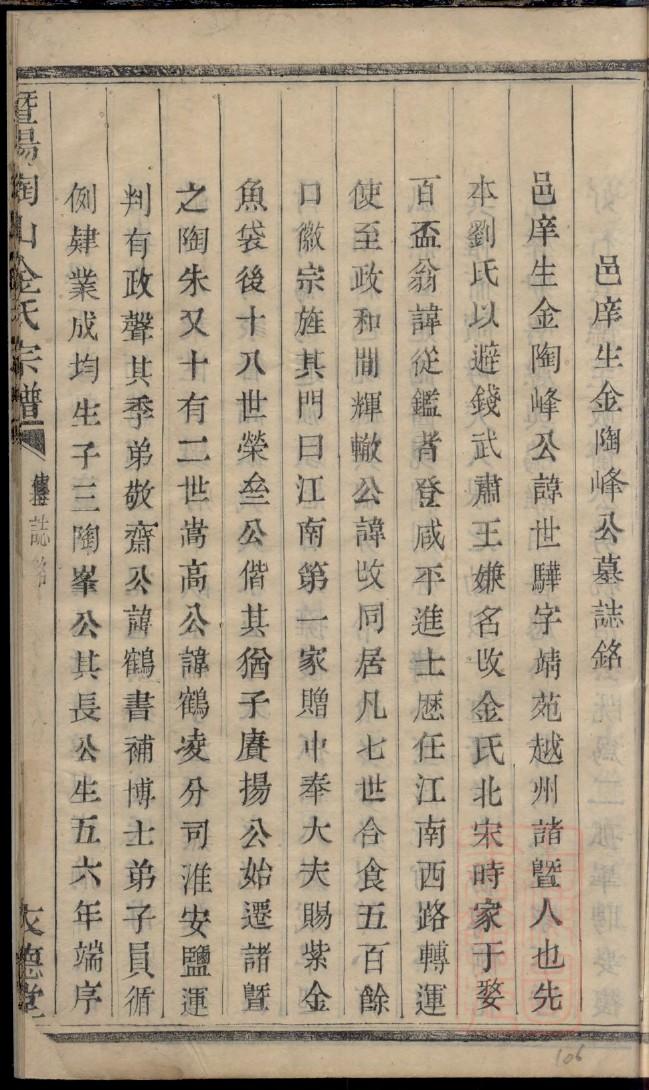 邑庠生金陶峰公墓誌銘
邑庠生金陶峰公諱世驊字靖苑越州諸暨人也先
本劉氏以避錢武肅王嫌名改金氏北宋時家于婺
百盃翁諱從鑑者登咸平進士歷任江南西路轉運
使至政和間輝轍公諱攺同居凡七世合食五百餘
口徽宗旌其門曰江南第一家贈中奉大夫賜紫金
魚袋後十八世榮垒公偕其猶子賡揚公始遷諸暨
之陶朱又十有二世嵩高公諱鶴凌分司淮安鹽運
判有政聲其季弟敬齋公諱鶴書補博士弟子員循
例肄業成均生子三陶峯公其長公生五六年端序
暨陽陶山金氏宗譜
傳誌銘
文德堂
106